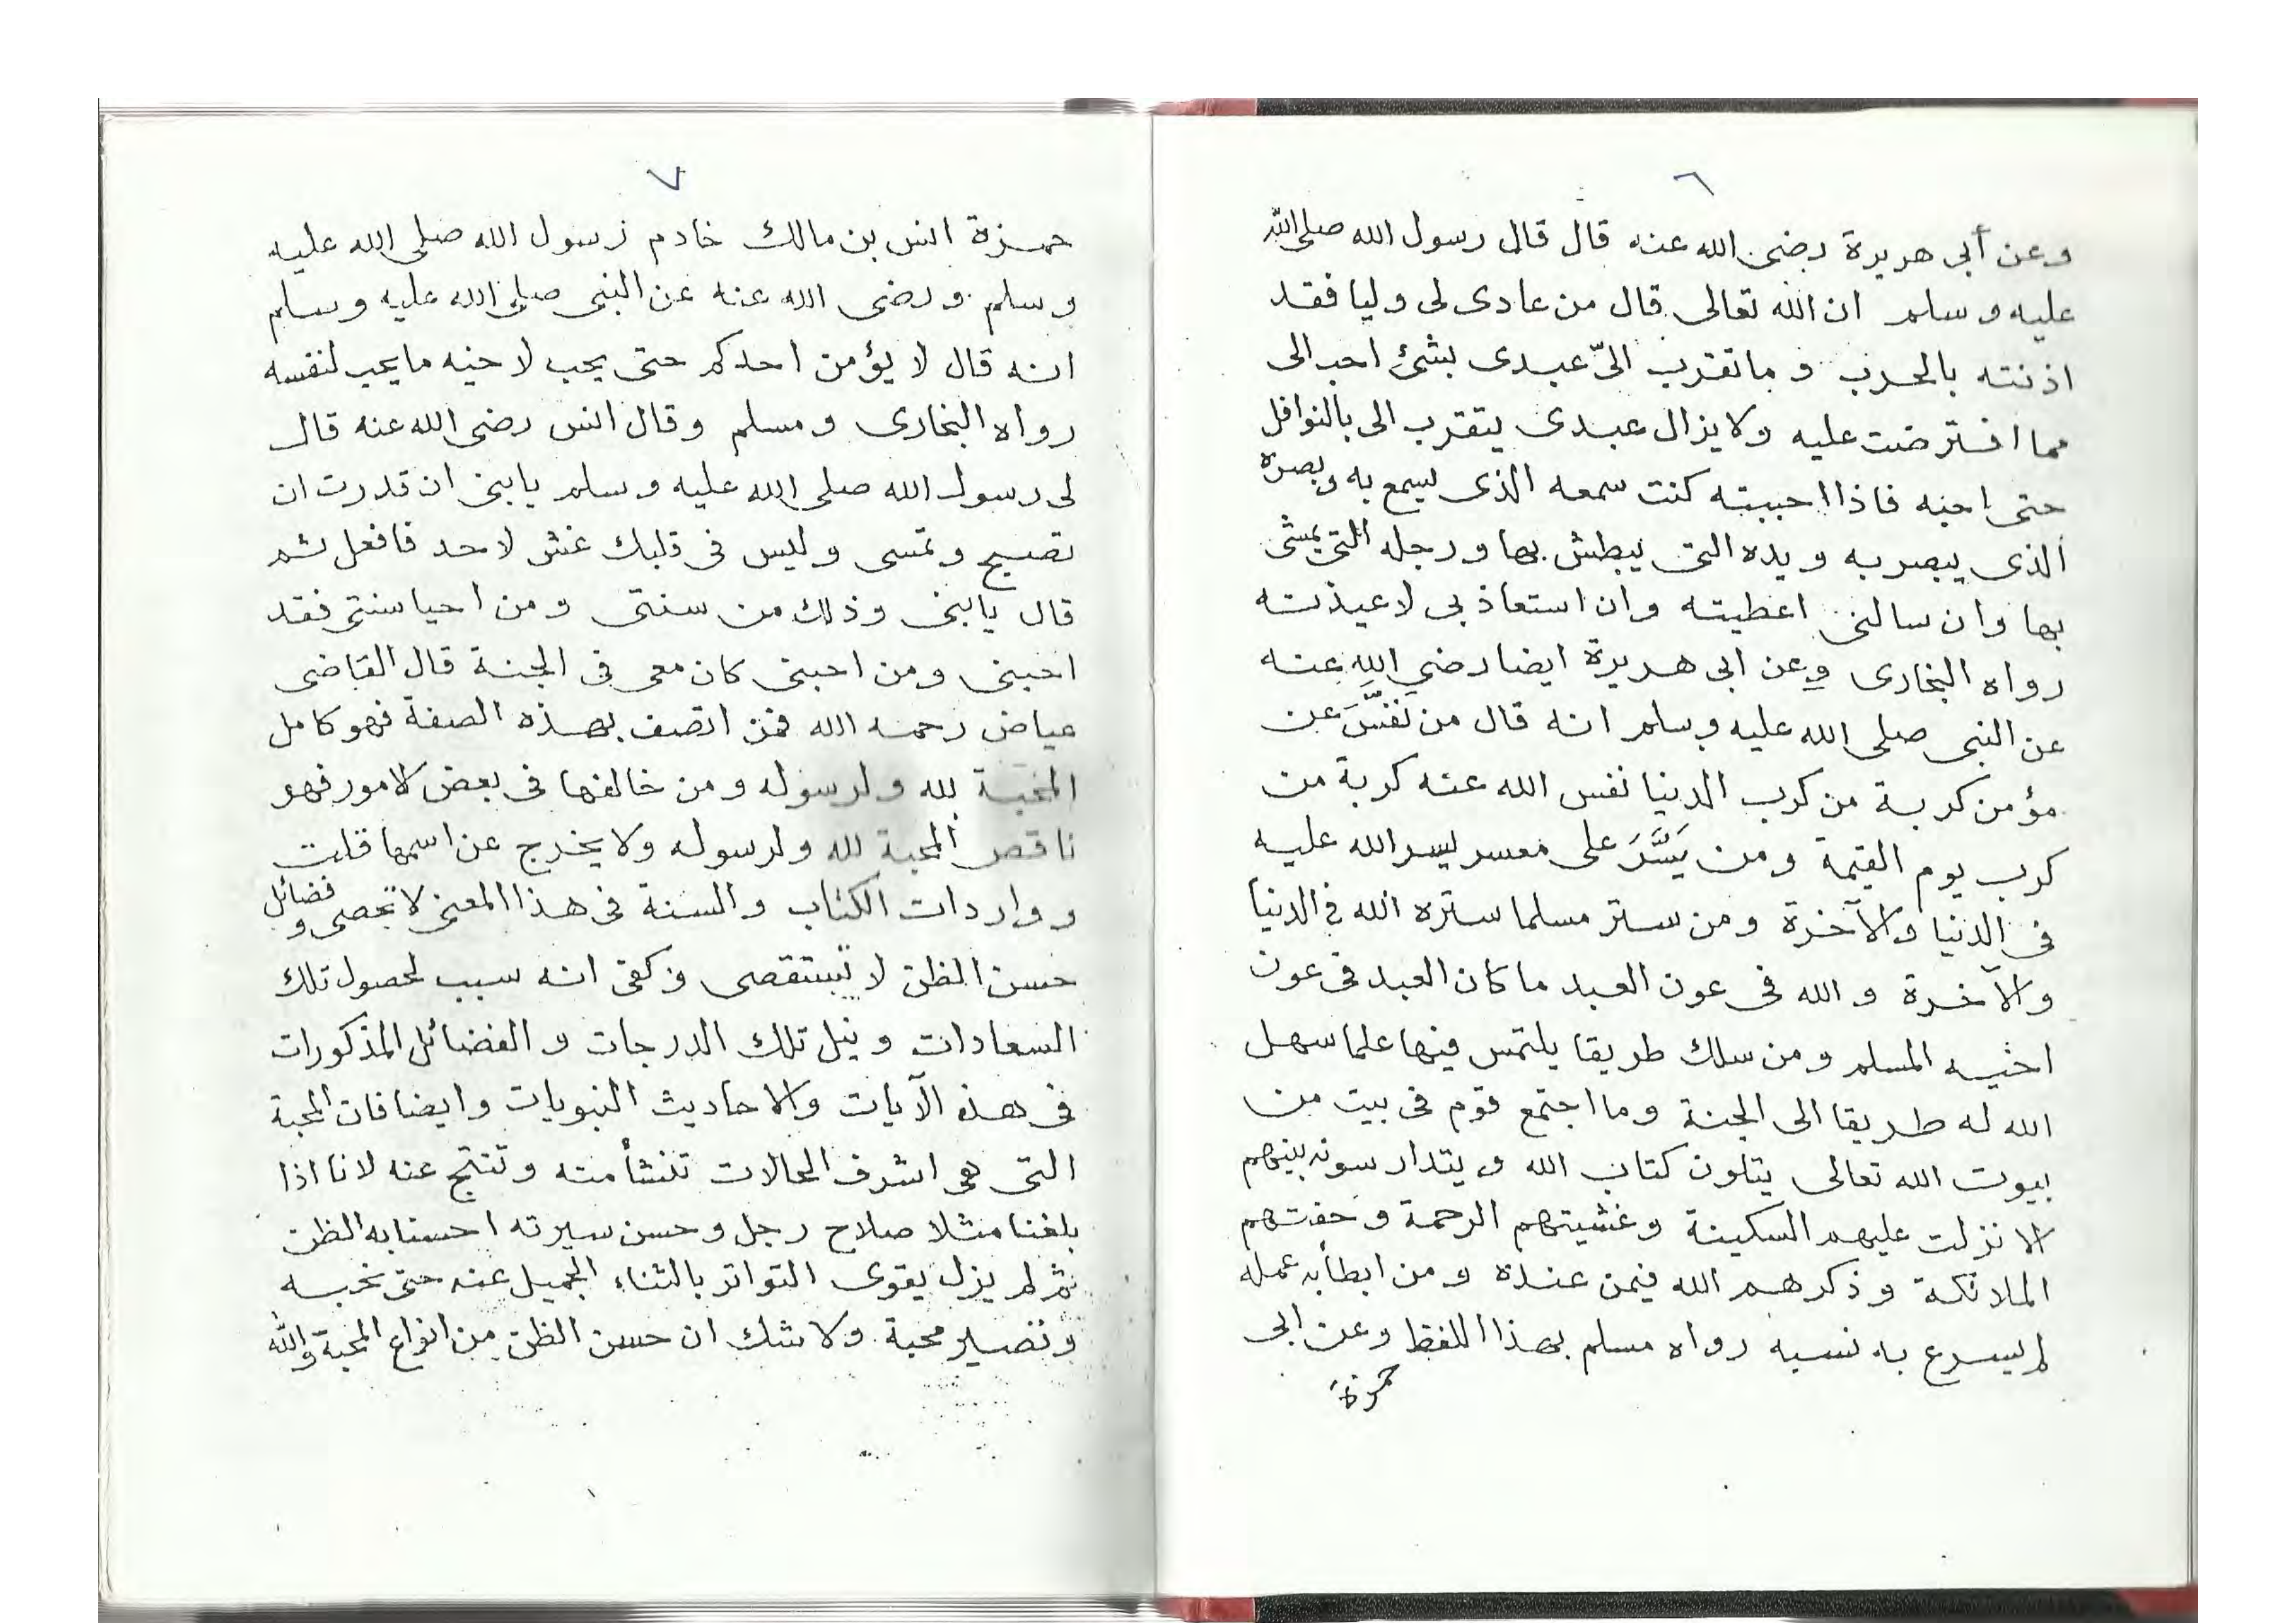 ٦
وعن أبى هريرة رضى الله عنه قال قال رسول الله صلى الله
عليه وسلم ان الله تعالى قال من عادى لى وليا فقد
اذنته بالحرب وما تقرب الىّ عبدى بشئ احب الى
مما افترضت عليه ولا يزال عبدى يتقرب الى بالنوافل
حتى احبه فاذا احببته كنت سمعه الذى يسمع به وبصره
الذى يبصر به ويده التى يبطش بها ورجله التى يمشى
بها وان سالنى اعطيته وان استعاذ بى لاعيذنه
رواه البخارى وعن ابى هريرة ايضا رضي الله عنه
عن النبى صلى الله عليه وسلم انه قال من نَفَّسَ عن
مؤمن كربة من كرب الدنيا نفس الله عنه كربة من
كرب يوم القيمة ومن يَسَّرَ على معسر يسر الله عليه
فى الدنيا والآخرة ومن ستر مسلما ستره الله فى الدنيا
والآخرة والله فى عون العبد ما كان العبد فى عون
اخيه المسلم ومن سلك طريقا يلتمس فيها علما سهل
الله له طريقا الى الجنة وما اجتمع قوم فى بيت من
بيوت الله تعالى يتلون كتاب الله ويتدارسونه بينهم
الا نزلت عليهم السكينة وغشيتهم الرحمة وحفتهم
الملائكة وذكرهم الله فيمن عنده ومن ابطأ به عمله
لم يسرع به نسبه رواه مسلم بهذا اللفظ وعن ابى
حمزة
٧
حمزة انس بن مالك خادم رسول الله صلى الله عليه
وسلم ورضى الله عنه عن النبى صلى الله عليه وسلم
انه قال لا يؤمن احدكم حتى يحب لاخيه ما يحب لنفسه
رواه البخارى ومسلم وقال انس رضى الله عنه قال
لى رسول الله صلى الله عليه وسلم يا بنى ان قدرت ان
تصبح وتمسى وليس فى قلبك غش لاحد فافعل ثم
قال يا بنى وذلك من سنتى ومن احيا سنتى فقد
احبنى ومن احبنى كان معى فى الجنة قال القاضى
عياض رحمه الله فمن اتصف بهذه الصفة فهو كامل
المحبة لله ولرسوله ومن خالفها فى بعض الامور فهو
ناقص المحبة لله ولرسوله ولا يخرج عن اسمها قلت
وواردات الكتاب والسنة فى هذا المعنى لا تحصى وفضائل
حسن الظن لا تستقصى وكفى انه سبب لحصول تلك
السعادات ونيل تلك الدرجات والفضائل المذكورات
فى هذه الآيات والاحاديث النبويات وايضا فان المحبة
التى هى اشرف الحالات تنشأ منه وتنتج عنه لانا اذا
بلغنا مثلا صلاح رجل وحسن سيرته احسنا به الظن
ثم لم يزل يقوى التواتر بالثناء الجميل عنه حتى نحبه
وتصير محبة ولا شك ان حسن الظن من انواع المحبة والله